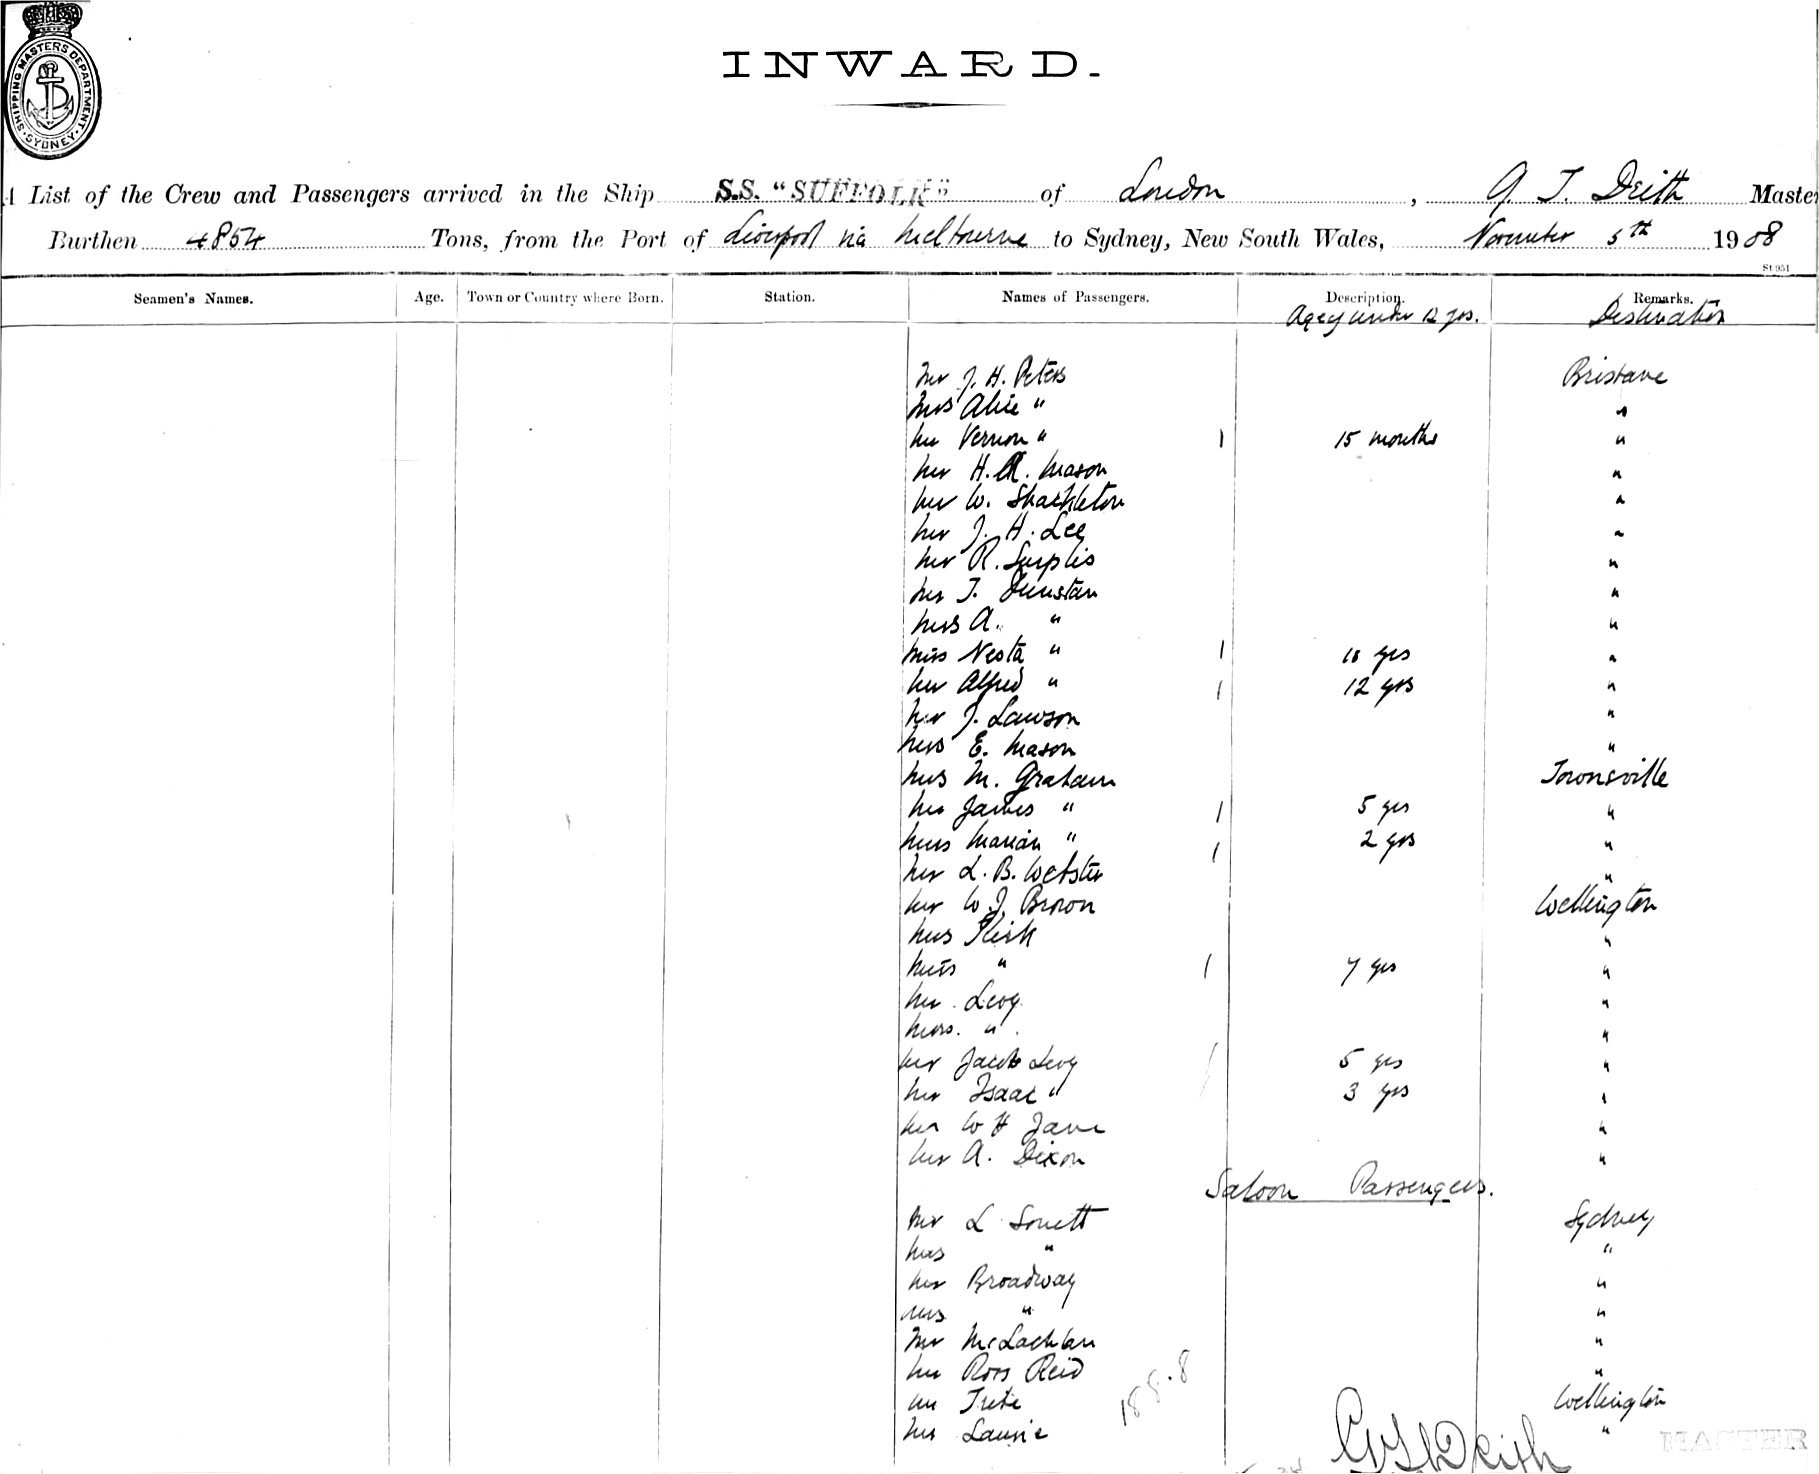 SHIPPING MASTERS DEPARTMENT · SYDNEY ·
INWARD.
A List of the Crew and Passengers arrived in the Ship S.S. "SUFFOLK" of London, A. T. Deith Master
Burthen 4854 Tons, from the Port of Liverpool via Melbourne to Sydney, New South Wales, November 5th 1908
St 951
Seamen's Names. Age. Town or Country where Born. Station. Names of Passengers. Description. Remarks.
Age if under 12 yrs. Destination
Mr J. H. Peters Brisbane
Mrs Alice " "
Mr Vernon " 1 15 months "
Mr H. R. Mason "
Mr W. Shackleton "
Mr J. H. Lee "
Mr R. Surplis "
Mr T. Dunstan "
Mrs A. " "
Miss Nesta " 1 10 yrs "
Mr Alfred " 1 12 yrs "
Mr J. Lawson "
Mrs E. Mason "
Mrs M. Graham Townsville
Mr James " 1 5 yrs "
Miss Marian " 1 2 yrs "
Mr L. B. Webster "
Mr W. J. Brown Wellington
Mrs Kirk "
Miss " 1 7 yrs "
Mr Levy "
Mrs. " "
Mr Jacob Levy 1 5 yrs "
Mr Isaac " 1 3 yrs "
Mr W H Jane "
Mr A. Dixon "
Saloon Passengers.
Mr L Sowett Sydney
Mrs " "
Mr Broadway "
Mrs " "
Mr McLachlan "
Mr Ross Reid "
Mr Wellington
Mr Laurie "
188.8
A T Deith
MASTER